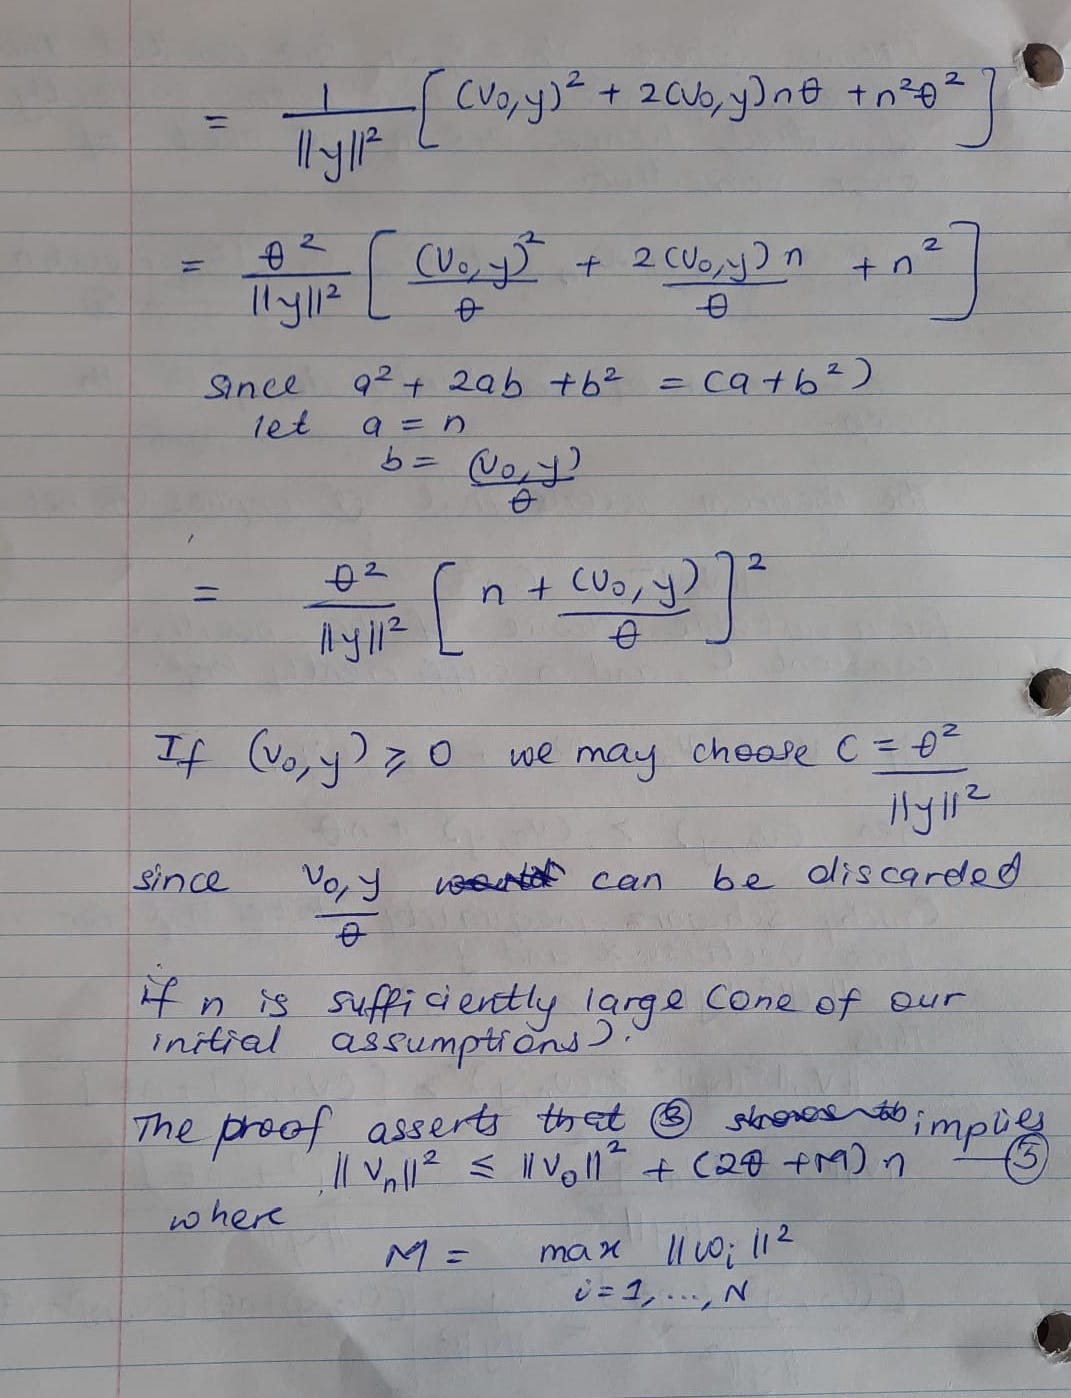 = 1/||y||² [ (v₀,y)² + 2(v₀,y)nθ + n²θ² ]
= θ²/||y||² [ (v₀,y)²/θ + 2(v₀,y)n/θ + n² ]
since a² + 2ab + b² = (a + b²)
let a = n
b = (v₀,y)/θ
= θ²/||y||² [ n + (v₀,y)/θ ]²
If (v₀,y) ⩾ 0 we may choose C = θ²/||y||²
since v₀,y/θ can be discarded
if n is sufficiently large (one of our
initial assumptions).
The proof asserts that ③ implies
||vₙ||² ≤ ||v₀||² + (2θ + M) n —⑤
where
M = max ||ωᵢ||²
i = 1, ..., N